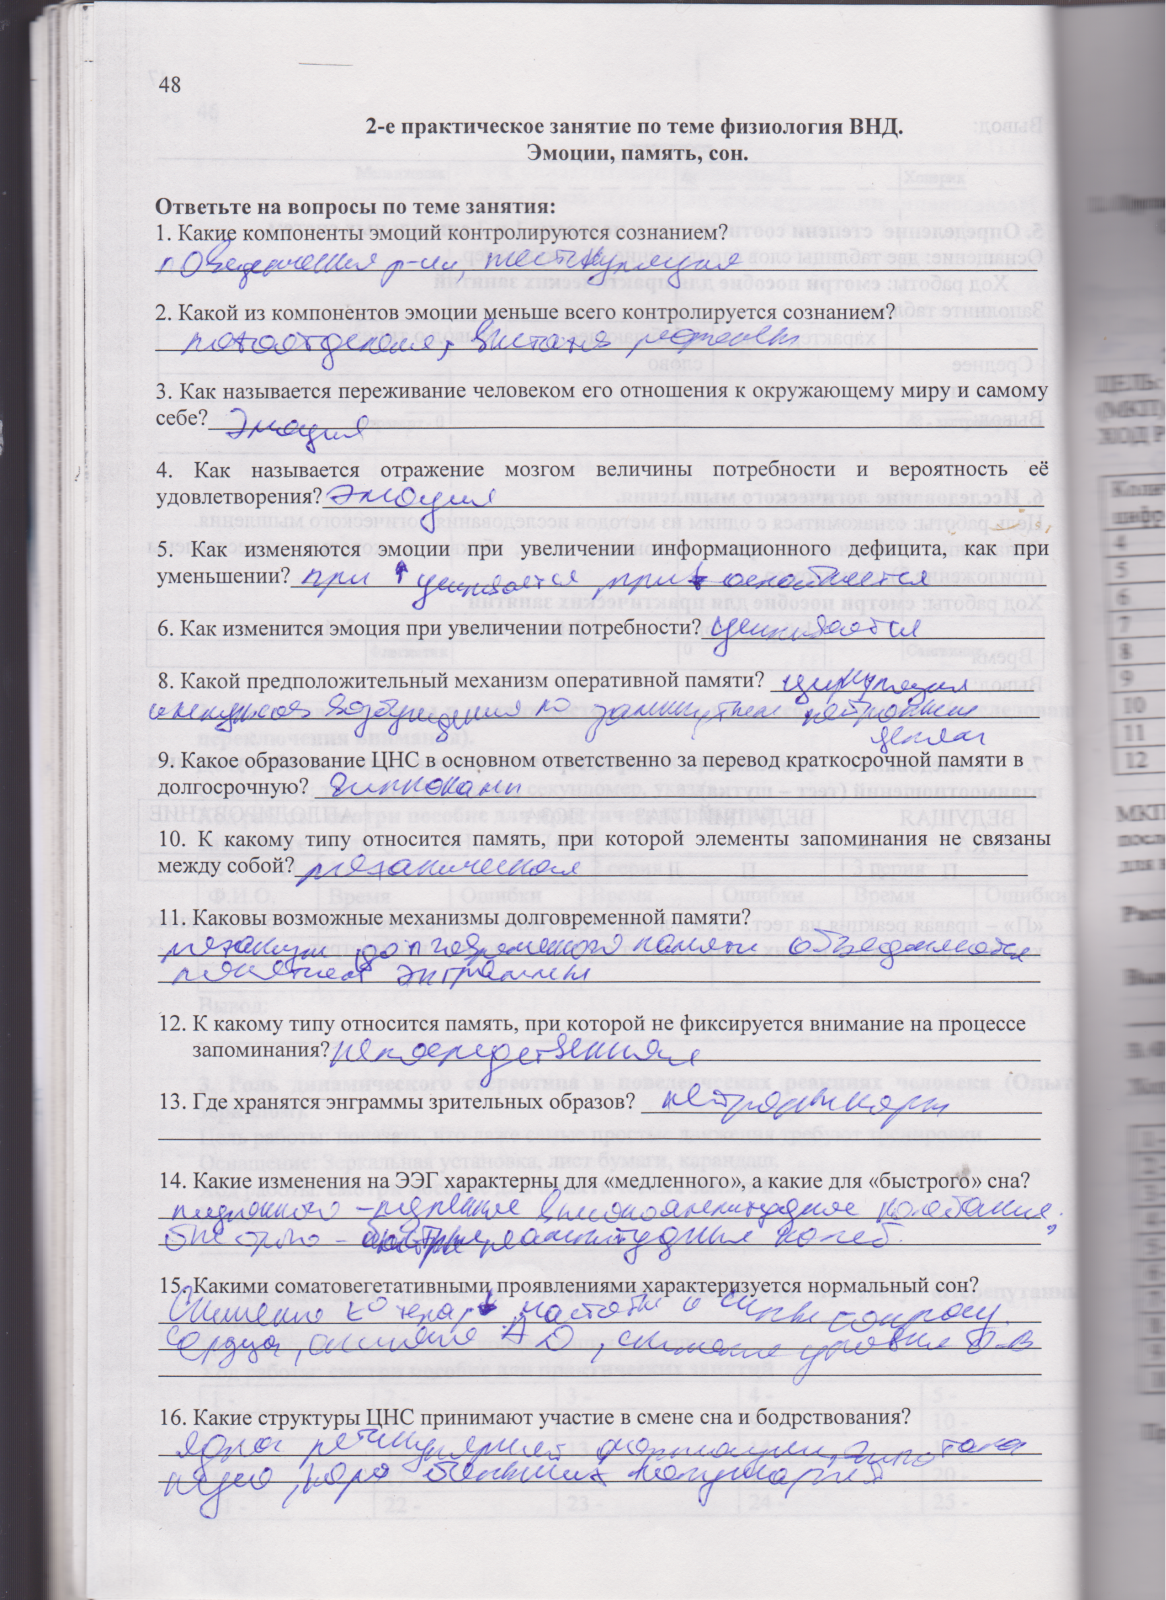 48
2-е практическое занятие по теме физиология ВНД.
Эмоции, память, сон.
Ответьте на вопросы по теме занятия:
1. Какие компоненты эмоций контролируются сознанием?
поведенческая р-ии, жестикуляция
2. Какой из компонентов эмоции меньше всего контролируется сознанием?
потоотделение,
3. Как называется переживание человеком его отношения к окружающему миру и самому
себе? Эмоция
4. Как называется отражение мозгом величины потребности и вероятность её
удовлетворения? эмоция
5. Как изменяются эмоции при увеличении информационного дефицита, как при
уменьшении? при ↑ усиливается при ↓ ослабляется
6. Как изменится эмоция при увеличении потребности? усиливается
8. Какой предположительный механизм оперативной памяти? циркуляция
импульсов возбуждения по замкнутым нейронным
цепям
9. Какое образование ЦНС в основном ответственно за перевод краткосрочной памяти в
долгосрочную? Гиппокамп
10. К какому типу относится память, при которой элементы запоминания не связаны
между собой? механическая
11. Каковы возможные механизмы долговременной памяти?
механизм долговременной памяти объединяются
понятием энграммы
12. К какому типу относится память, при которой не фиксируется внимание на процессе
запоминания? непосредственная
13. Где хранятся энграммы зрительных образов?
14. Какие изменения на ЭЭГ характерны для «медленного», а какие для «быстрого» сна?
медленного – медленные высокоамплитудное колебания.
быстрого - колеб.
15. Какими соматовегетативными проявлениями характеризуется нормальный сон?
Снижению t° частоты и силы сокращ.
сердца, снижение АД, снижение уровня О.В
16. Какие структуры ЦНС принимают участие в смене сна и бодрствования?
ядра ретикулярной формации, гипотала
мус, кора больших полушарий